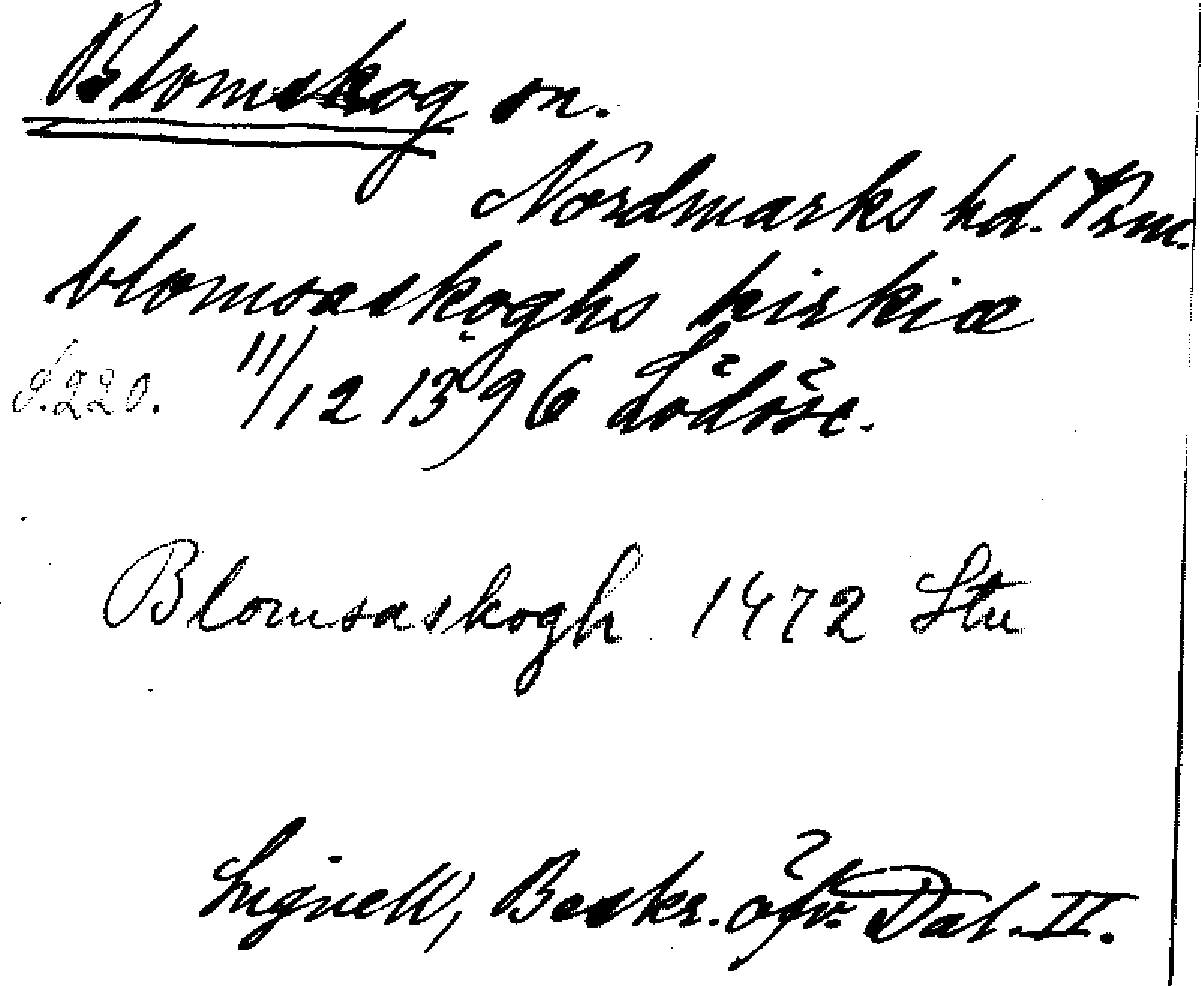 Blomskog sn.
Nordmarks hd. Vrm.
blomsaskoghs kirkiæ
S. 220. 11/12 1396 Lödöse.
Blomsaskogh 1472 Stu
Lignell, Beskr. öfv. Dal. II.